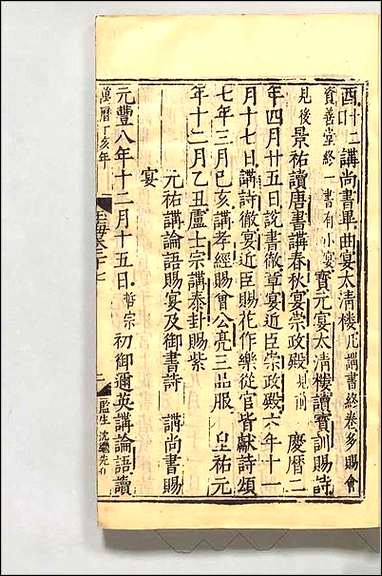 酉十二日講尚書畢曲宴太清樓凡講書終卷多賜會
資善堂終一書有小宴寶元宴太清樓讀寶訓賜詩
見後景祐讀唐書講春秋宴崇政殿見前 慶曆二
年四月廿五日說書徹章宴近臣崇政殿六年十一
月十七日講詩徹宴近臣賜花作樂從官皆獻詩頌
七年三月己亥講孝經賜會公亮三品服 皇祐元
年十二月乙丑盧士宗講泰卦賜紫
元祐講論語賜宴及御書詩 講尚書賜
宴
元豐八年十二月十五日哲宗初御邇英講論語讀
萬曆丁亥年
玉海卷二十七
監生沈